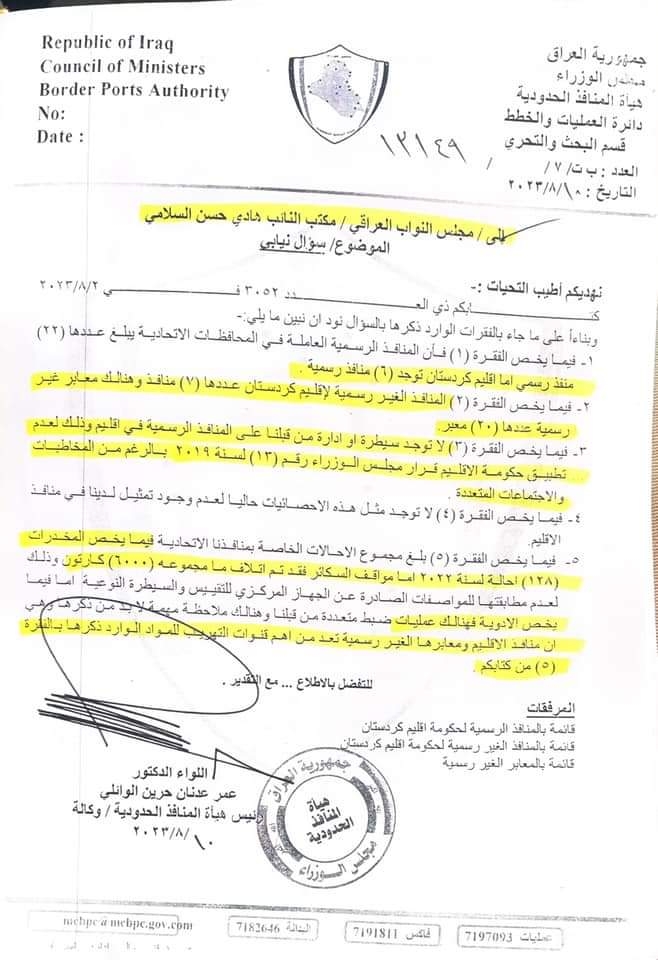 Republic of Iraq
Council of Ministers
Border Ports Authority
No:
Date :
جمهورية العراق
مجلس الوزراء
هيأة المنافذ الحدودية
دائرة العمليات والخطط
قسم البحث والتحري
العدد : ب ت/ ٧ / ١٣١٤٩
التاريخ : ١٠/ ٨/ ٢٠٢٣
إلى / مجلس النواب العراقي / مكتب النائب هادي حسن السلامي
الموضوع/ سؤال نيابي
نهديكم أطيب التحيات :-
كتـــابكم ذي العـــدد ٣٠٥٢ فـــي ٢٠٢٣/٨/٢
وبناءاً على ما جاء بالفقرات الوارد ذكرها بالسؤال نود ان نبين ما يلي:-
١- فيما يخص الفقرة (١) فأن المنافذ الرسمية العاملة في المحافظات الاتحادية يبلغ عددها (٢٢)
منفذ رسمي اما اقليم كردستان توجد (٦) منافذ رسمية .
٢- فيما يخص الفقرة (٢) المنافذ الغير رسمية لإقليم كردستان عددها (٧) منافذ وهنالك معابر غير
رسمية عددها (٢٠) معبر.
٣- فيما يخص الفقرة (٣) لا توجد سيطرة او ادارة من قبلنا على المنافذ الرسمية في اقليم وذلك لعدم
تطبيق حكومة الاقليم قرار مجلس الوزراء رقم (١٣) لسنة ٢٠١٩ بالرغم من المخاطبات
والاجتماعات المتعددة .
٤- فيما يخص الفقرة (٤) لا توجد مثل هذه الاحصائيات حاليا لعدم وجود تمثيل لدينا في منافذ
الاقليم.
٥- فيما يخص الفقرة (٥) بلغ مجموع الاحالات الخاصة بمنافذنا الاتحادية فيما يخص المخدرات
(١٢٨) احالة لسنة ٢٠٢٢ اما مواقف السكائر فقد تم اتلاف ما مجموعه (٦٠٠٠) كارتون وذلك
لعدم مطابقتها للمواصفات الصادرة عن الجهاز المركزي للتقييس والسيطرة النوعية اما فيما
يخص الادوية فهنالك عمليات ضبط متعددة من قبلنا وهنالك ملاحظة مهمة لابد من ذكرها وهي
ان منافذ الاقليم ومعابرها الغير رسمية تعد من اهم قنوات التهريب للمواد الوارد ذكرها بالفقرة
(٥) من كتابكم .
للتفضل بالاطلاع ... مع التقدير .
المرفقات
قائمة بالمنافذ الرسمية لحكومة اقليم كردستان
قائمة بالمنافذ الغير رسمية لحكومة اقليم كردستان
قائمة بالمعابر الغير رسمية
اللواء الدكتور
عمر عدنان حرين الوائلي
رئيس هيأة المنافذ الحدودية / وكالة
١٠/ ٨/ ٢٠٢٣
جمهورية العراق
هيأة
المنافذ
الحدودية
مجلس الوزراء
عمليات 7197093
فاكس 7191811
البدالة 7182646
mcbpc@mcbpc.gov.com